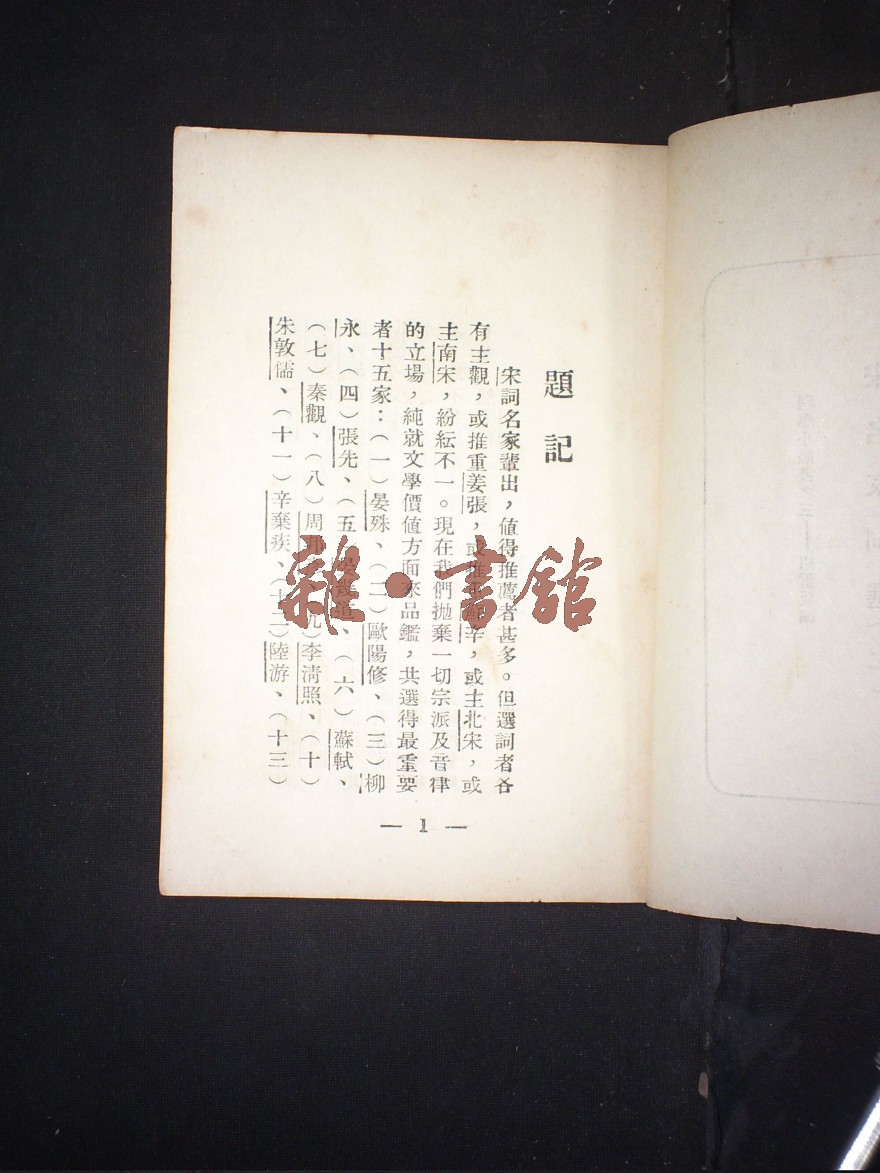 題記
宋詞名家輩出，值得推薦者甚多。但選詞者各
有主觀，或推重姜張，或推重蘇辛，或主北宋，或
主南宋，紛紜不一。現在我們拋棄一切宗派及音律
的立場，純就文學價值方面來品鑑，共選得最重要
者十五家：（一）晏殊、（二）歐陽修、（三）柳
永、（四）張先、（五）晏幾道、（六）蘇軾、
（七）秦觀、（八）周邦（九）李清照、（十）
朱敦儒、（十一）辛棄疾、（十二）陸游、（十三）
— 1 —
雜·書館